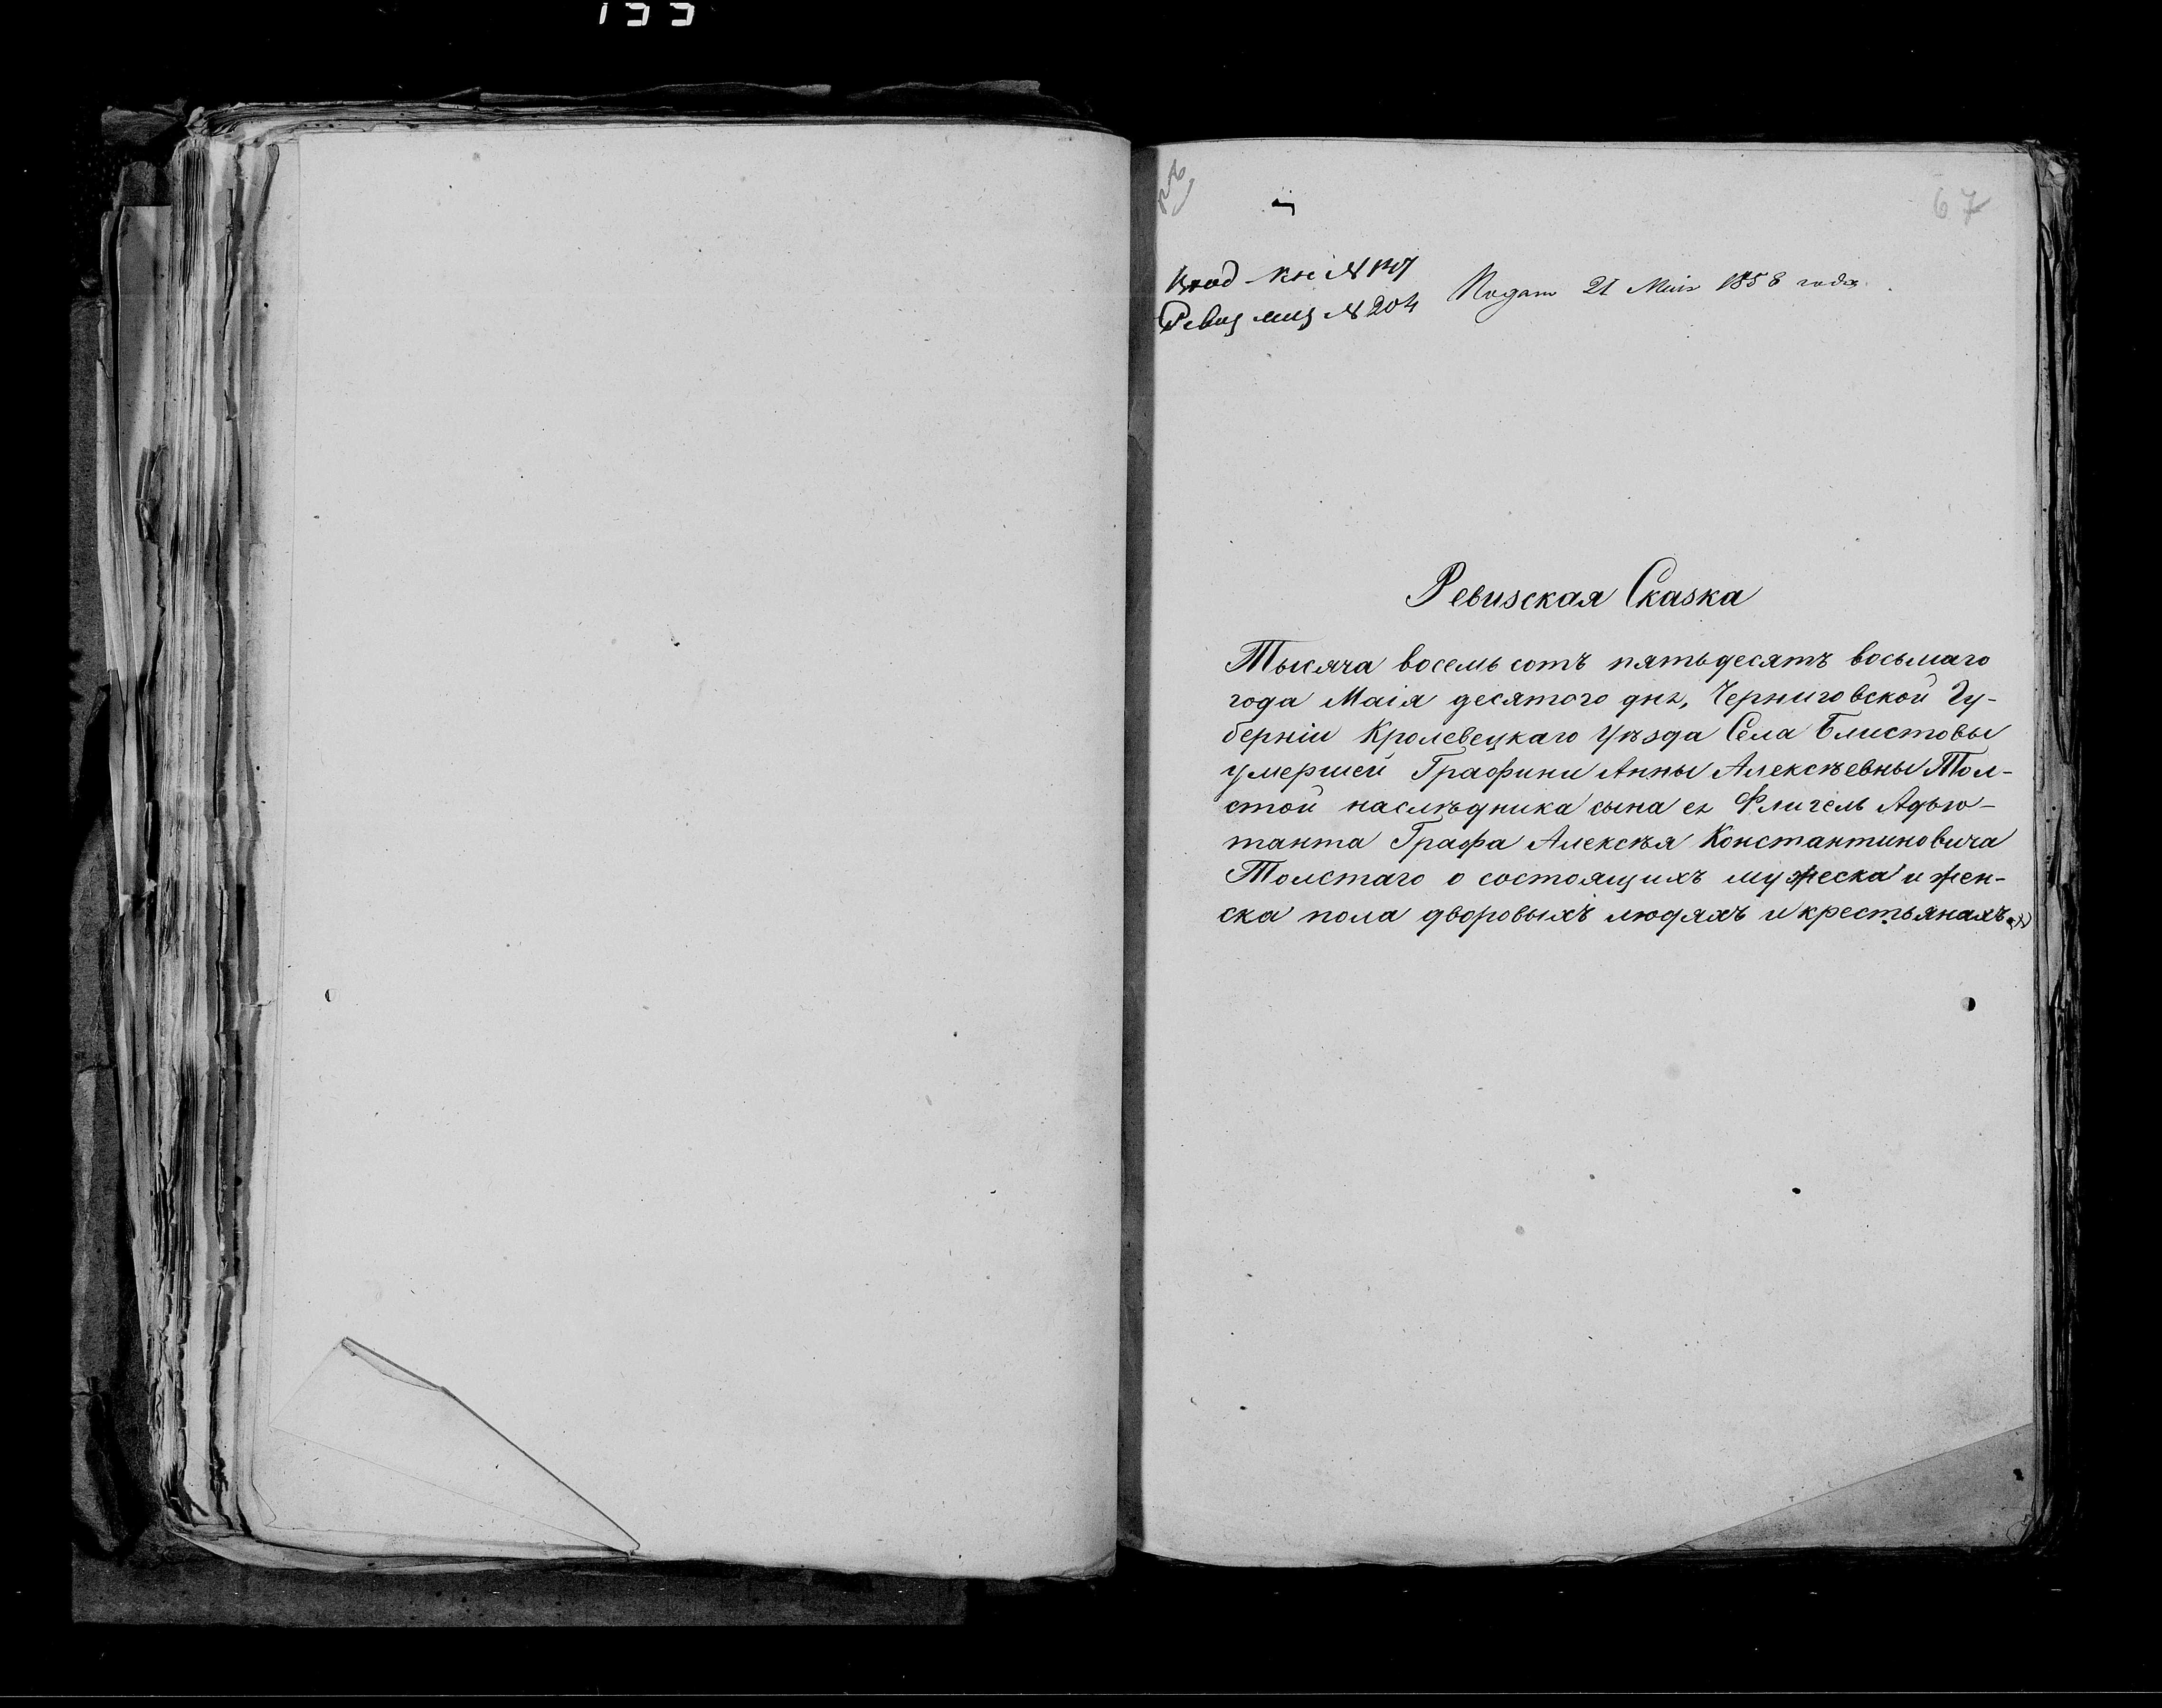 67
Вход кн № 1307
Ревиз № 204
Подан 21 Мая 1858 года
Ревизская Сказка
Тысяча восемь сотъ пятьдесятъ восьмаго
года Маія десятого дня, Черниговской Гу-
берніи Кролевецкаго Уѣзда Села Блистовы
умершей Графини Анны Алексѣевны Тол-
стой наслѣдника сына ея Флигель Адъю-
танта Графа Алексѣя Константиновича
Толстаго о состоящихъ мужеска и жен-
ска пола дворовыхъ людяхъ и крестьянахъ